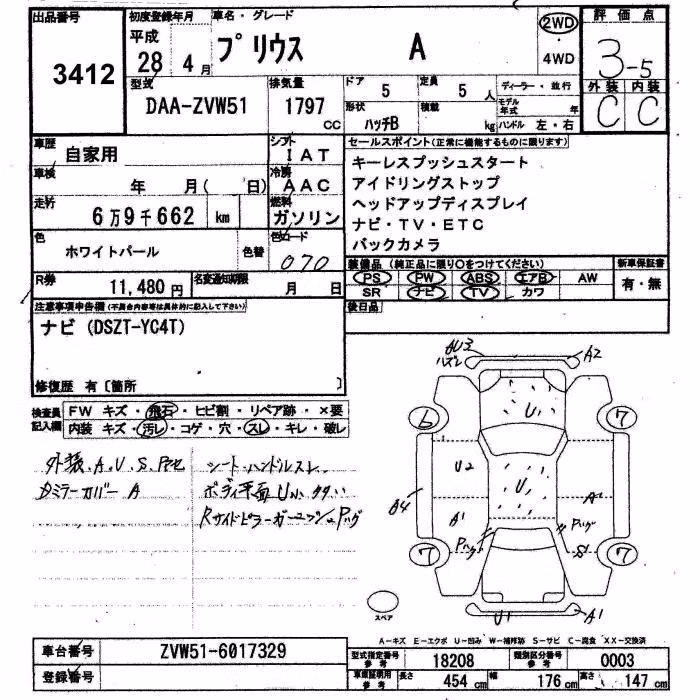 出品番号 初度登録年月 車名・グレード 2WD 評価点
3412 平成 28年 4月 プリウス A 4WD 3-5
型式 排気量 ドア 定員 ディーラー・並行 外装 内装
DAA-ZVW51 1797cc 5 5人 モデル年式 年 C C
形状 ハッチB 積載 kg ハンドル 左・右
車歴 自家用 シフト IAT セールスポイント(正常に機能するものに限ります)
車検 年 月( 日) 冷房 AAC キーレスプッシュスタート
アイドリングストップ
走行 6万9千662 km 燃料 ガソリン ヘッドアップディスプレイ
ナビ・TV・ETC
色 ホワイトパール 色替 色コード 070 バックカメラ
装備品(純正品に限り○をつけてください) 新車保証書
PS PW ABS エアB AW 有・無
SR ナビ TV カワ
R券 11,480円 名変通知期限 月 日
後日品
注意事項申告欄(不具合内容等は具体的に記入して下さい)
ナビ(DSZT-YC4T)
修復歴 有〔箇所 〕
検査員記入欄 FW キズ・飛石・ヒビ割・リペア跡・×要
内装 キズ・汚レ・コゲ・穴・スレ・キレ・破レ
外装.A.U.S.
シート・ハンドルスレ
ミラーカバー A
ボディ平面U小
A2
U
6 7
U2
U
A4 A1
A1
7 7
S1
スペア
U1 A1
A-キズ E-エクボ U-凹み W-補修跡 S-サビ C-腐食 XX-交換済
車台番号 ZVW51-6017329 型式指定番号 参考 18208 類別区分番号 参考 0003
登録番号 車庫証明用 参考 長さ 454cm 幅 176cm 高さ 147cm